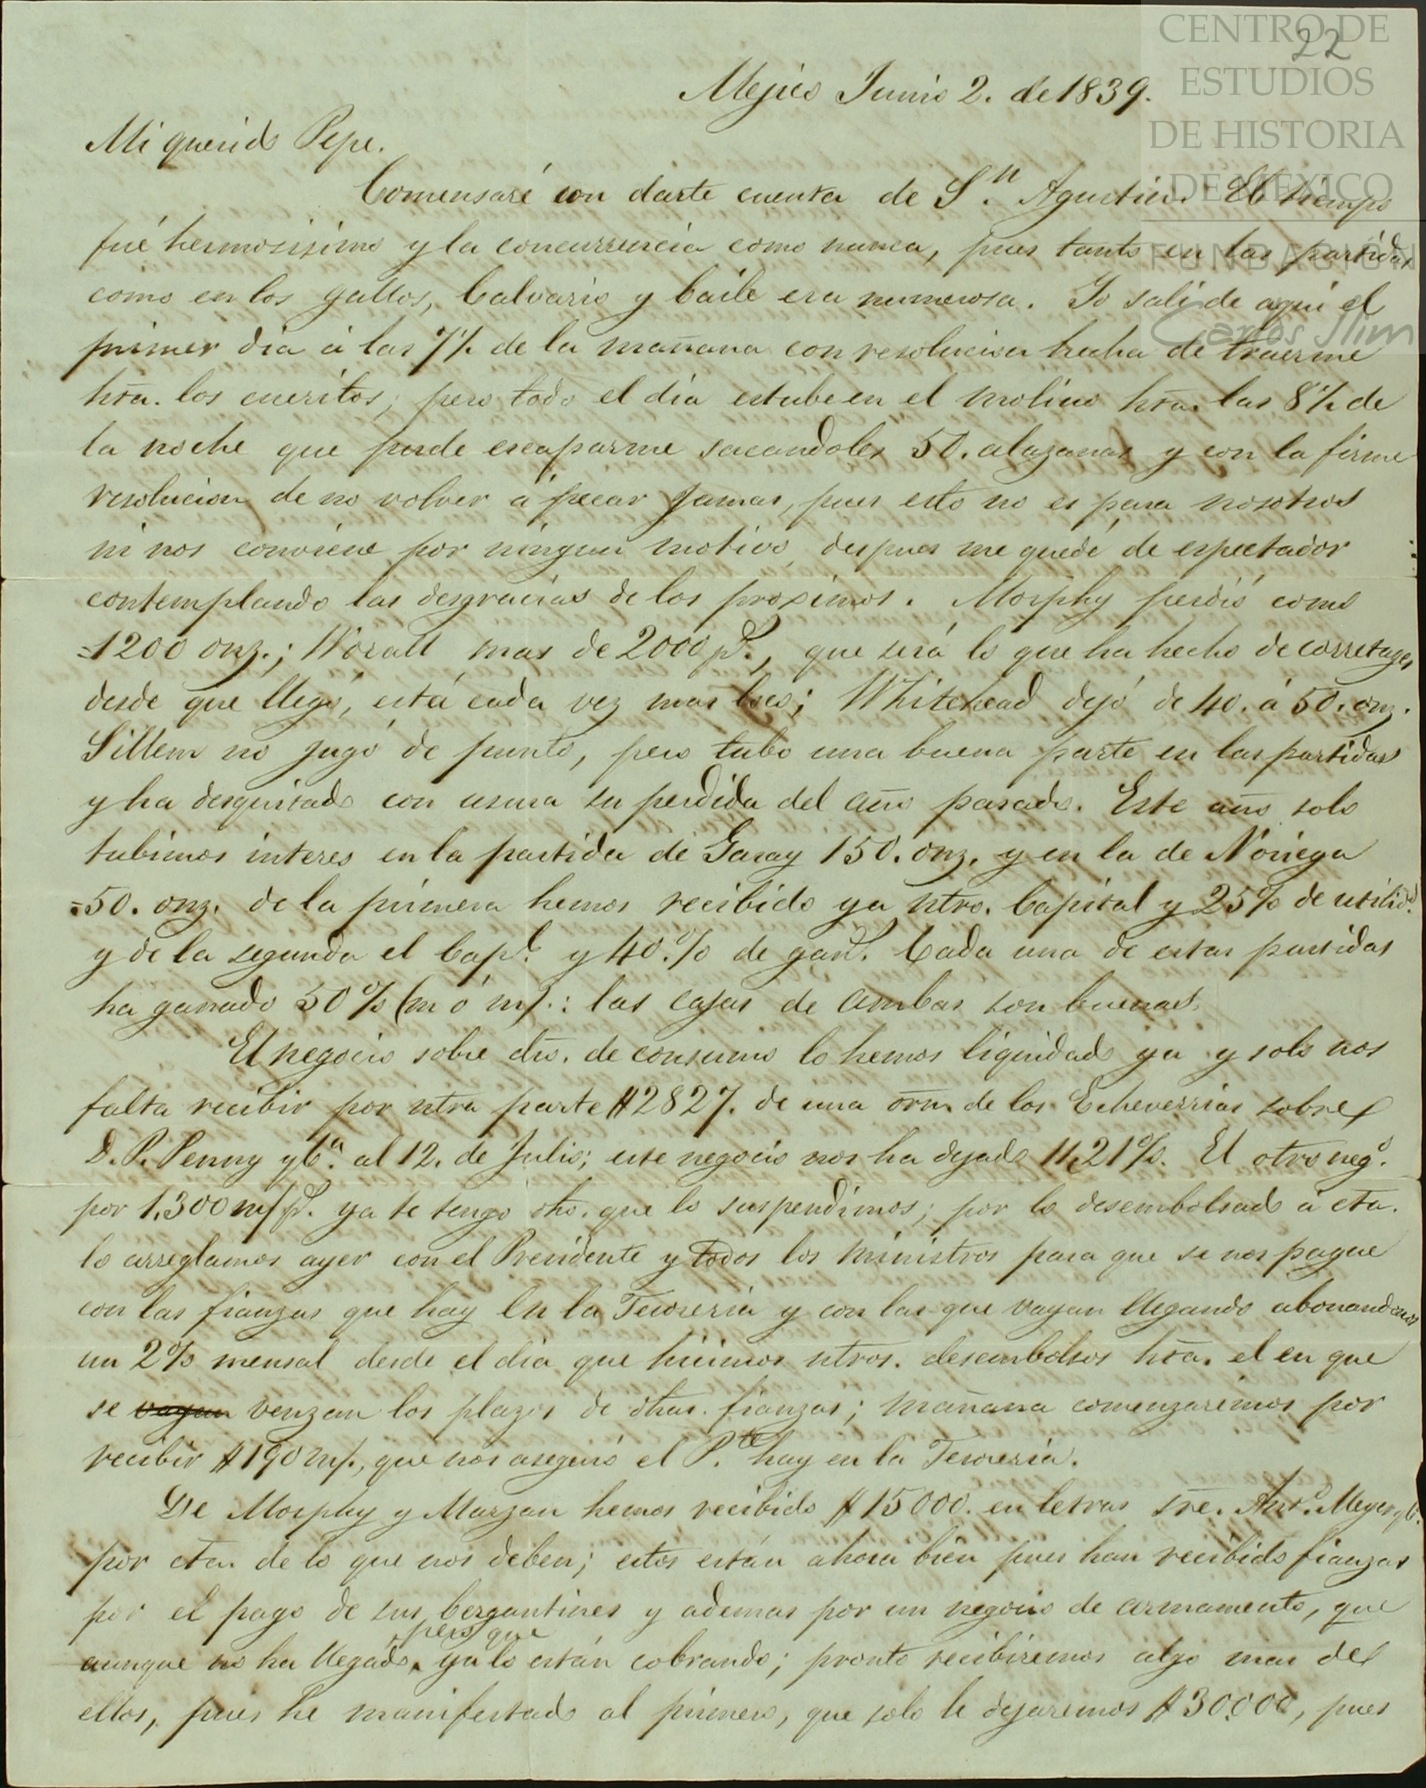 CENTRO DE
ESTUDIOS
DE HISTORIA
DE MÉXICO
FUNDACIÓN
Carlos Slim
22
Mejico Junio 2. de 1839.
Mi querido Pepe.
Comensaré con darte cuenta de Sn. Agustin. El tiempo
fué hermosisimo y la concurrencia como nunca, pues tanto en las partidas
como en los gallos, Calvario y baile era numerosa. Yo sali de aqui el
primer dia á las 7½ de la mañana con resolucion hecha de traerme
hta. los cueritos; pero todo el dia estube en el molino hta. las 8½ de
la noche que pude escaparme sacandoles 50. alazanas y con la firme
resolucion de no volver á pecar jamas, pues esto no es para nosotros
ni nos conviene por ningun motivo, despues me quedé de espectador
contemplando las desgracias de los proximos. Morphy perdió como
=1200 onz.; Worall mas de 2000 ps., que será lo que ha hecho de corretages
desde que llegó, está cada vez mas ; Whitehead dejó de 40. á 50. onz.
Sillem no jugó de punto, pero tubo una buena parte en las partidas
y ha desquitado con usura su perdida del año pasado. Este año solo
tubimos interes en la partida de Garay 150. onz. y en la de Noriega
=50. onz. de la primera hemos recibido ya ntro. Capital y 25% de utilidd.
y de la segunda el Capl. y 40.% de gana. Cada una de estas partidas
ha ganado 50% (m ó m).: las cajas de ambas son buenas.
El negocio sobre dros. de consumo lo hemos liquidado ya y solo nos
falta recibir por ntra parte $2827. de una orn. de los Echeverrias sobre
D. P. Penny y Ca. al 12. de Julio; este negocio nos ha dejado 11,21%. El otro nego.
por 1.300 m/ps. ya te tengo dho. que lo suspendimos; por lo desembolsado á cta.
lo arreglamos ayer con el Presidente y todos los ministros para que se nos pague
con las fianzas que hay en la Tesoreria y con las que vayan llegando abonandonos
un 2% mensal desde el dia que hicimos ntros. desembolsos hta. el en que
se vayan venzan los plazos de dhas. fianzas; mañana comenzaremos por
recibir $190 m/p., que nos aseguró el Pte. hay en la Tesoreria.
De Morphy y Marzan hemos recibido $15000. en letras sre. Anto. Meyer y C.
por cta. de lo que nos deben; estos están ahora bien pues han recibido fianzas
por el pago de sus bergantines y ademas por un negocio de armamento, que
pero que
aunque no ha llegado, ya lo están cobrando; pronto recibiremos algo mas de
ellos, pues he manifestado al primero, que solo le dejaremos $30000, pues